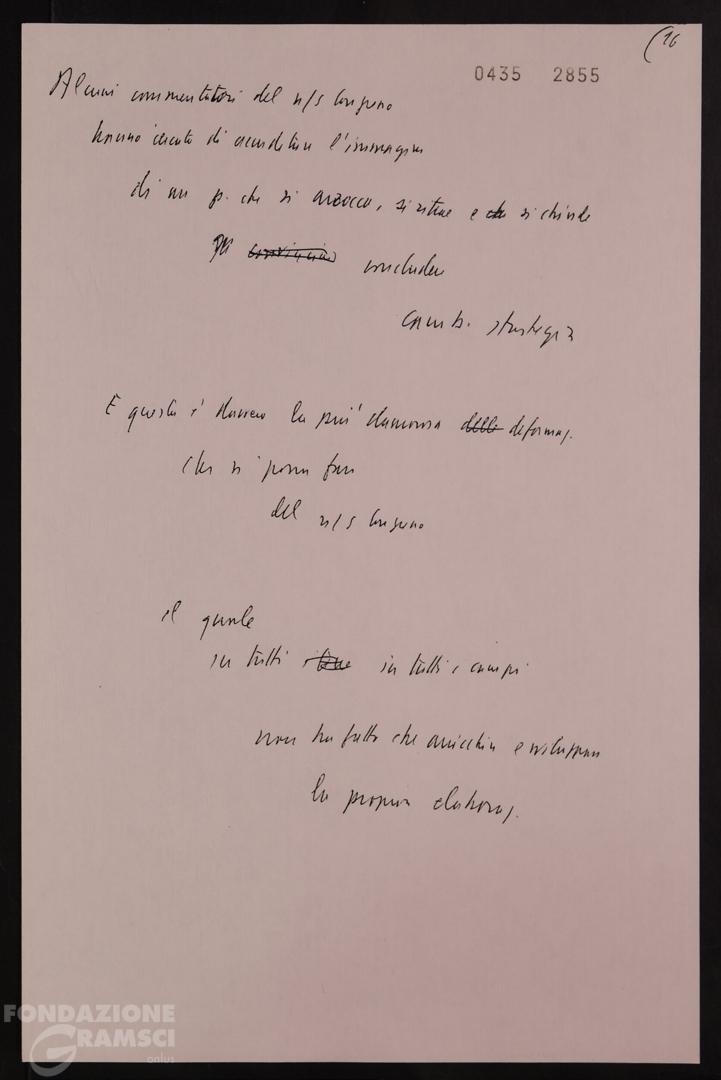 (16
0435 2855
Alcuni commentatori del n/s congresso
hanno cercato di accreditare l'immagine
di un p. che si arrocca, si ritrae e che si chiude
Per concludere
camb. strategia
E questa è davvero la più clamorosa delle deformaz.
che si possa fare
del n/s congresso
il quale
su tutti in tutti i campi
non ha fatto che arricchire e sviluppare
la propria elaboraz.
FONDAZIONE
GRAMSCI
onlus